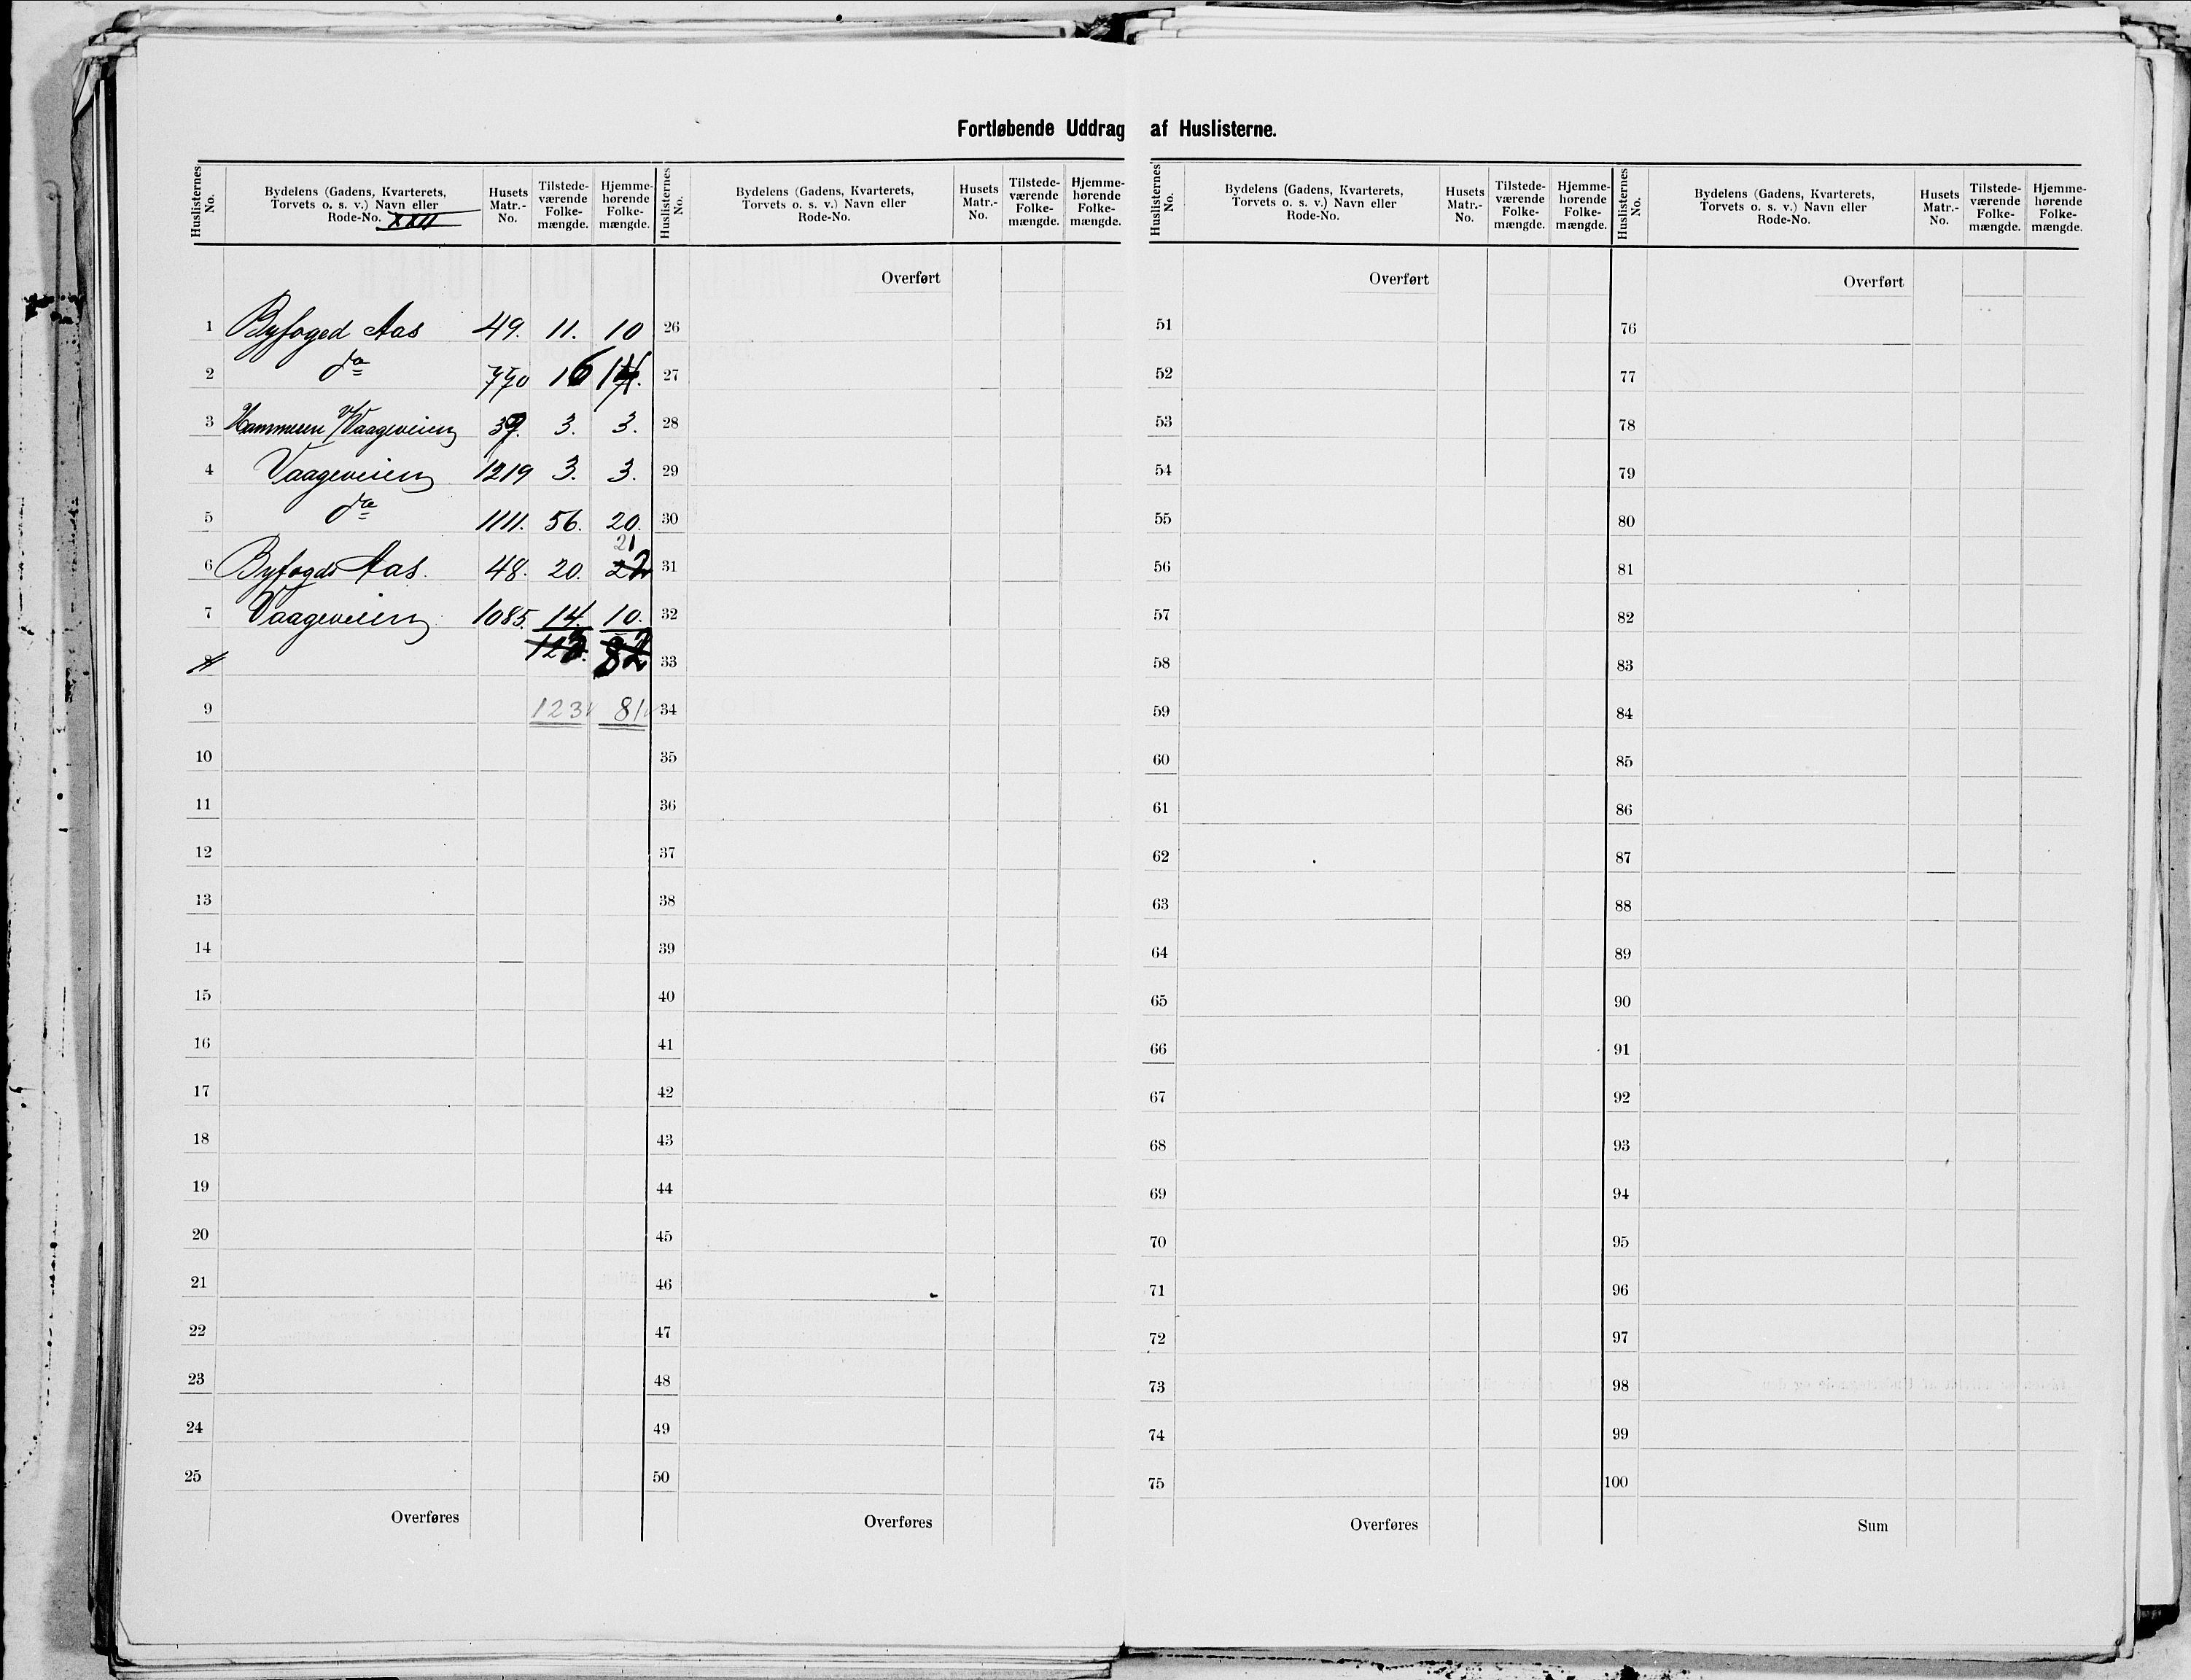 Fortløbende Uddrag af Huslisterne.
Huslisternes No. Bydelens (Gadens, Kvarterets, Torvets o. s. v.) Navn eller Rode-No. XXII Husets Matr.-No. Tilstedeværende Folkemængde. Hjemmehørende Folkemængde.
1 Byfoged Aas 49. 11. 10
2 do 770 16 14.
3 Hammeren V/Vaageveien 39. 3. 3.
4 Vaageveien 1219 3. 3.
5 do 1111. 56. 20.
21
6 Byfogds Aas. 48. 20. 22
7 Vaageveien 1085. 14. 10.
8 123. 82
9 123 81
10
11
12
13
14
15
16
17
18
19
20
21
22
23
24
25
Overføres
Huslisternes No. Bydelens (Gadens, Kvarterets, Torvets o. s. v.) Navn eller Rode-No. Husets Matr.-No. Tilstede-værende Folke-mængde. Hjemme-hørende Folke-mængde.
Overført
26
27
28
29
30
31
32
33
34
35
36
37
38
39
40
41
42
43
44
45
46
47
48
49
50
Overføres
Huslisternes No. Bydelens (Gadens, Kvarterets, Torvets o. s. v.) Navn eller Rode-No. Husets Matr.-No. Tilstede-værende Folke-mængde. Hjemme-hørende Folke-mængde.
Overført
51
52
53
54
55
56
57
58
59
60
61
62
63
64
65
66
67
68
69
70
71
72
73
74
75
Overføres
Huslisternes No. Bydelens (Gadens, Kvarterets, Torvets o. s. v.) Navn eller Rode-No. Husets Matr.-No. Tilstede-værende Folke-mængde. Hjemme-hørende Folke-mængde.
Overført
76
77
78
79
80
81
82
83
84
85
86
87
88
89
90
91
92
93
94
95
96
97
98
99
100
Sum